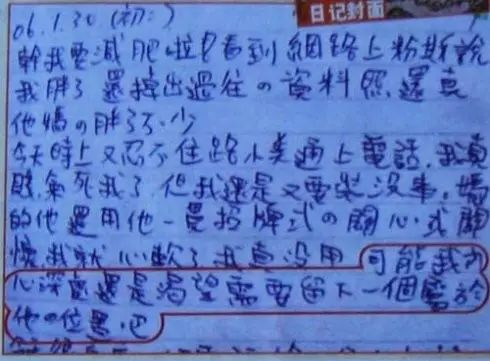 日记封面
06.1.30(初二)
幹我要減肥啦!看到網路上粉斯說
我胖了還掉出過往の資料照還真
他媽の胖了不少
今天時上又忍不住跟小 通上電話.我真
氣死我了但我還是又要裝没事.媽
的他還用他一貫招牌式の關心 式關
懷我就心軟了我真没用可能我内
心深處還是渴望需要留下一個屬於
他の位置吧